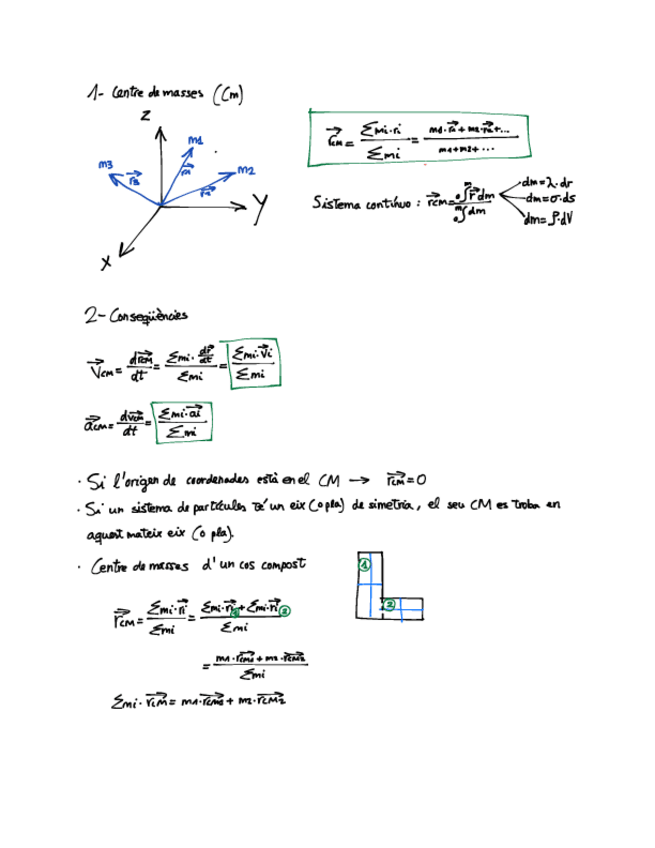 1- Centre de masses (Cm)
Z
m1
m3
m2
r3
r1
r2
Y
X
r⃗cm = Σmi·ri / Σmi = m1·r⃗1 + m2·r⃗2 + ... / m1+m2+ ...
Sistema contínuo : r⃗cm = ₀∫ᵐ r⃗ dm / ₀∫ᵐ dm
dm = λ·dr
dm = σ·ds
dm = ρ·dV
2- Conseqüències
V⃗CM = dr⃗CM / dt = Σmi · dr⃗/dt / Σmi = Σmi·v⃗i / Σmi
a⃗CM = dv⃗CM / dt = Σmi·a⃗i / Σmi
· Si l'origen de coordenades està en el CM → r⃗CM = 0
· Si un sistema de partícules té un eix (o pla) de simetria, el seu CM es troba en
aquest mateix eix (o pla).
· Centre de masses d'un cos compost
1
2
r⃗CM = Σmi·r⃗i / Σmi = Σmi·r⃗i① + Σmi·r⃗i② / Σmi
= m1·r⃗CM1 + m2·r⃗CM2 / Σmi
Σmi · r⃗CM = m1·r⃗CM1 + m2·r⃗CM2